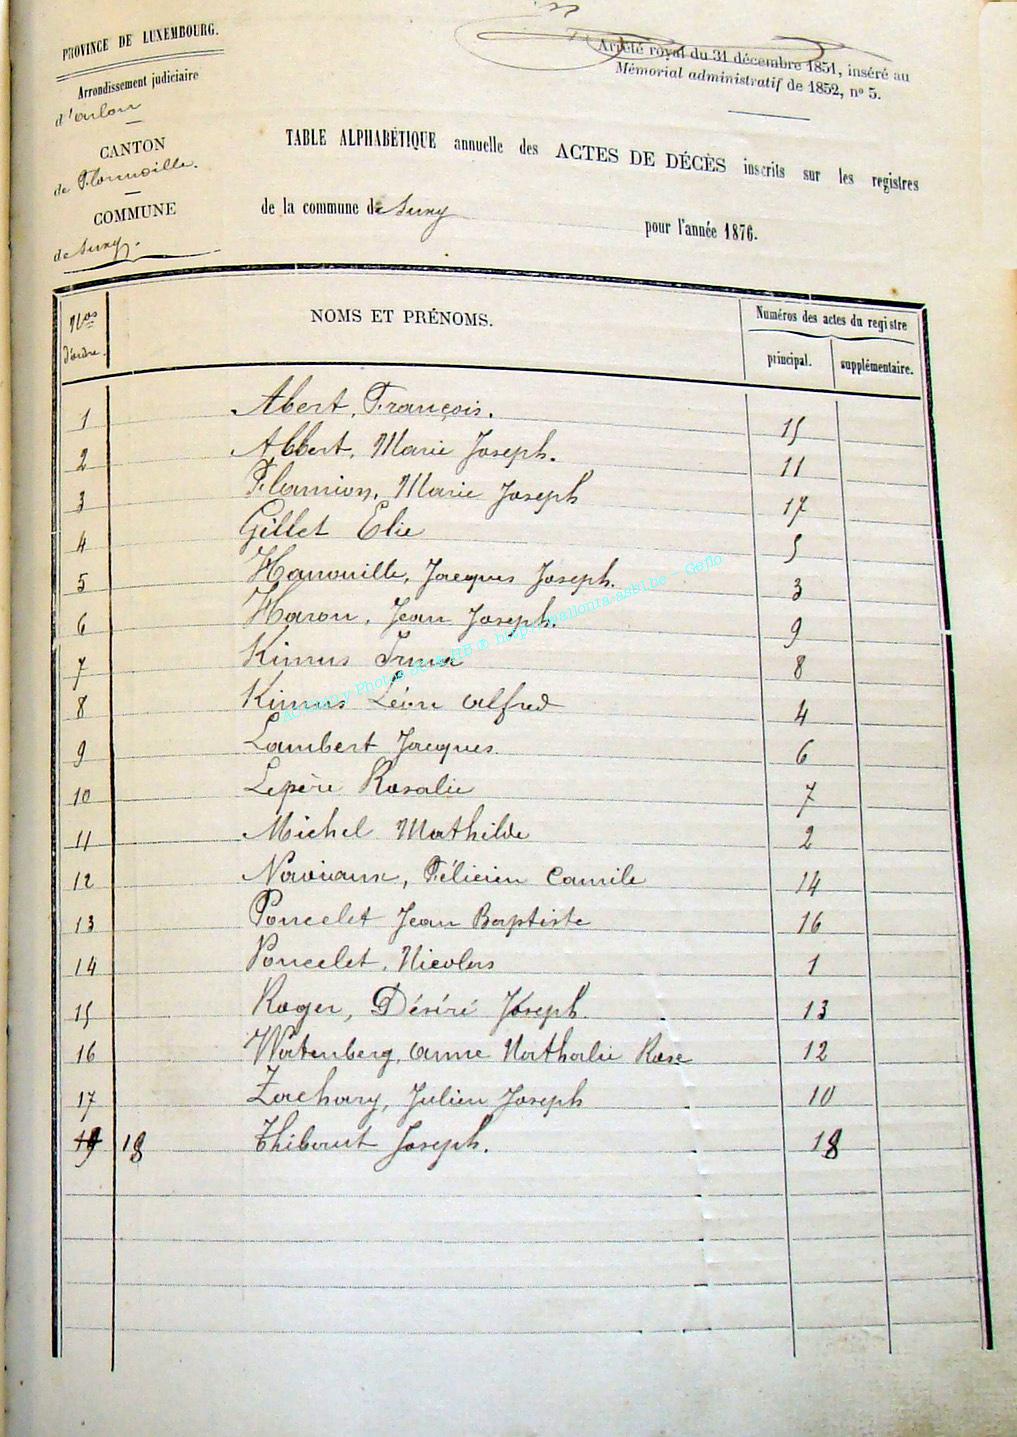 PROVINCE DE LUXEMBOURG.
Arrondissement judiciaire
d'arlon
CANTON
de Florenville.
COMMUNE
de Suxy.
Arrêté royal du 31 décembre 1851, inséré au
Mémorial administratif de 1852, nº 5.
TABLE ALPHABÉTIQUE annuelle des ACTES DE DÉCÈS inscrits sur les registres
de la commune de Suxy pour l'année 1876.
Nos d'ordre. NOMS ET PRÉNOMS. Numéros des actes du registre
principal. supplémentaire.
1 Abert, François. 15
2 Albert, Marie Joseph. 11
3 Flamion, Marie Joseph 17
4 Gillet Elie 5
5 Hanouille, Jacques Joseph. 3
6 Hason, Jean Joseph. 9
7 Kimus Irma 8
8 Kimus Léon alfred 4
9 Lambert Jacques 6
10 Lepère Rosalie 7
11 Michel Mathilde 2
12 Naviaux, Félicien Camile 14
13 Poncelet Jean Baptiste 16
14 Poncelet, Nicolas 1
15 Roger, Désiré Joseph. 13
16 Watenberg, anne Nathalie Rose 12
17 Zachary, Julien Joseph 10
18 Thibaut Joseph. 18